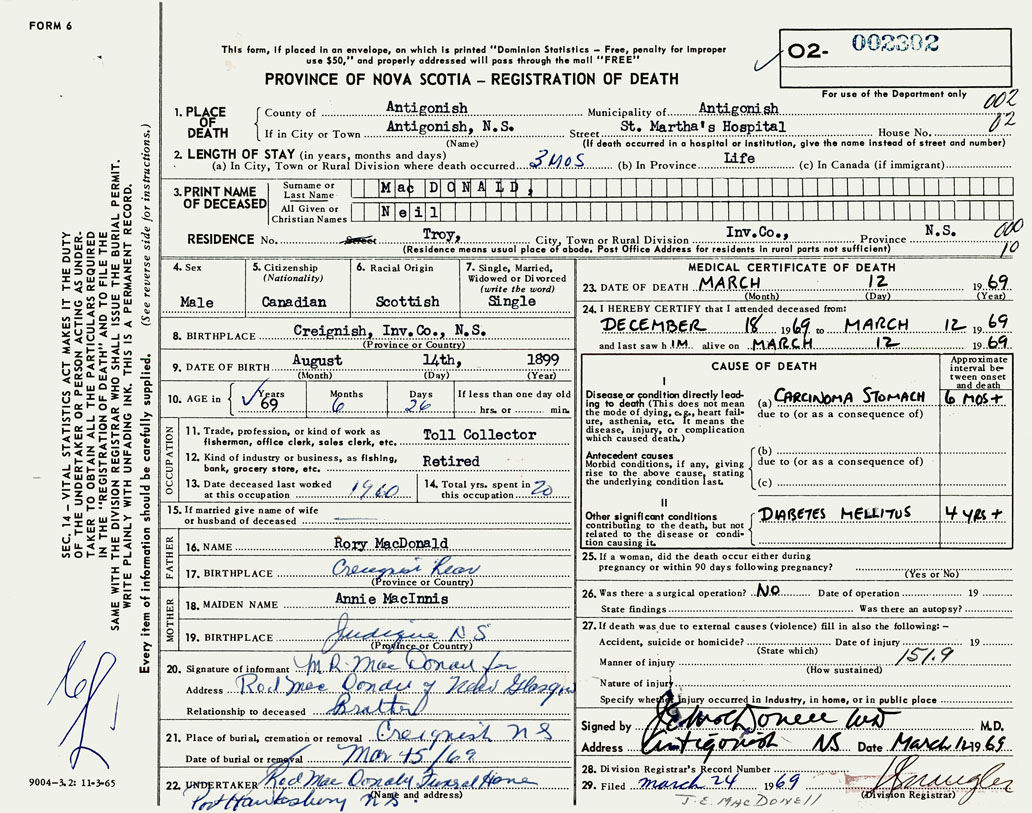 FORM 6
This form, if placed in an envelope, on which is printed "Dominion Statistics – Free, penalty for improper
use $50," and properly addressed will pass through the mail "FREE"
PROVINCE OF NOVA SCOTIA – REGISTRATION OF DEATH
02- 002302
For use of the Department only
002
02
1. PLACE OF DEATH
County of Antigonish Municipality of Antigonish
If in City or Town Antigonish, N.S. Street St. Martha's Hospital House No.
(Name) (If death occurred in a hospital or institution, give the name instead of street and number)
2. LENGTH OF STAY (in years, months and days)
(a) In City, Town or Rural Division where death occurred 3 MOS (b) In Province Life (c) In Canada (if immigrant)
3. PRINT NAME OF DECEASED
Surname or Last Name MacDONALD,
All Given or Christian Names Neil
RESIDENCE No. Street Troy, City, Town or Rural Division Inv.Co., Province N.S.
(Residence means usual place of abode. Post Office Address for residents in rural parts not sufficient)
000
10
4. Sex
Male
5. Citizenship
(Nationality)
Canadian
6. Racial Origin
Scottish
7. Single, Married,
Widowed or Divorced
(write the word)
Single
8. BIRTHPLACE Creignish, Inv.Co., N.S.
(Province or Country)
9. DATE OF BIRTH August 14th, 1899
(Month) (Day) (Year)
10. AGE in
Years 69
Months 6
Days 26
If less than one day old
hrs. or min.
OCCUPATION
11. Trade, profession, or kind of work as
fisherman, office clerk, sales clerk, etc. Toll Collector
12. Kind of industry or business, as fishing,
bank, grocery store, etc. Retired
13. Date deceased last worked
at this occupation 1960
14. Total yrs. spent in
this occupation 20
15. If married give name of wife
or husband of deceased
FATHER
16. NAME Rory MacDonald
17. BIRTHPLACE Creignish Rear
(Province or Country)
MOTHER
18. MAIDEN NAME Annie MacInnis
19. BIRTHPLACE Judique NS
(Province or Country)
20. Signature of informant M.R. MacDonald for
Address Rod MacDonald New Glasgow
Relationship to deceased Brother
21. Place of burial, cremation or removal Creignish NS
Date of burial or removal Mar 15/69
22. UNDERTAKER Rod MacDonald Funeral Home
(Name and address)
Port Hawkesbury N.S.
MEDICAL CERTIFICATE OF DEATH
23. DATE OF DEATH MARCH 12 1969
(Month) (Day) (Year)
24. I HEREBY CERTIFY that I attended deceased from:
DECEMBER 18 1969 to MARCH 12 1969
and last saw h IM alive on MARCH 12 1969
CAUSE OF DEATH
Approximate
interval be-
tween onset
and death
I
Disease or condition directly lead-
ing to death (This does not mean
the mode of dying, e.g., heart fail-
ure, asthenia, etc. It means the
disease, injury, or complication
which caused death.)
(a) CARCINOMA STOMACH 6 MOS+
due to (or as a consequence of)
Antecedent causes
Morbid conditions, if any, giving
rise to the above cause, stating
the underlying condition last.
(b)
due to (or as a consequence of)
(c)
II
Other significant conditions
contributing to the death, but not
related to the disease or condi-
tion causing it.
DIABETES MELLITUS 4 YRS+
25. If a woman, did the death occur either during
pregnancy or within 90 days following pregnancy?
(Yes or No)
26. Was there a surgical operation? NO Date of operation 19
State findings Was there an autopsy?
27. If death was due to external causes (violence) fill in also the following: –
Accident, suicide or homicide? Date of injury 19
(State which)
151.9
Manner of injury
(How sustained)
Nature of injury
Specify whether injury occurred in industry, in home, or in public place
Signed by J.E. MacDonell MD M.D.
Address Antigonish NS Date March 12 1969
28. Division Registrar's Record Number
29. Filed March 24 1969
(Division Registrar)
J.E. MACDONELL
SEC. 14 – VITAL STATISTICS ACT MAKES IT THE DUTY
OF THE UNDERTAKER OR PERSON ACTING AS UNDER-
TAKER TO OBTAIN ALL THE PARTICULARS REQUIRED
IN THE "REGISTRATION OF DEATH" AND TO FILE THE
SAME WITH THE DIVISION REGISTRAR WHO SHALL ISSUE THE BURIAL PERMIT.
WRITE PLAINLY WITH UNFADING INK. THIS IS A PERMANENT RECORD.
Every item of information should be carefully supplied. (See reverse side for instructions.)
9004-3.2: 11-3-65